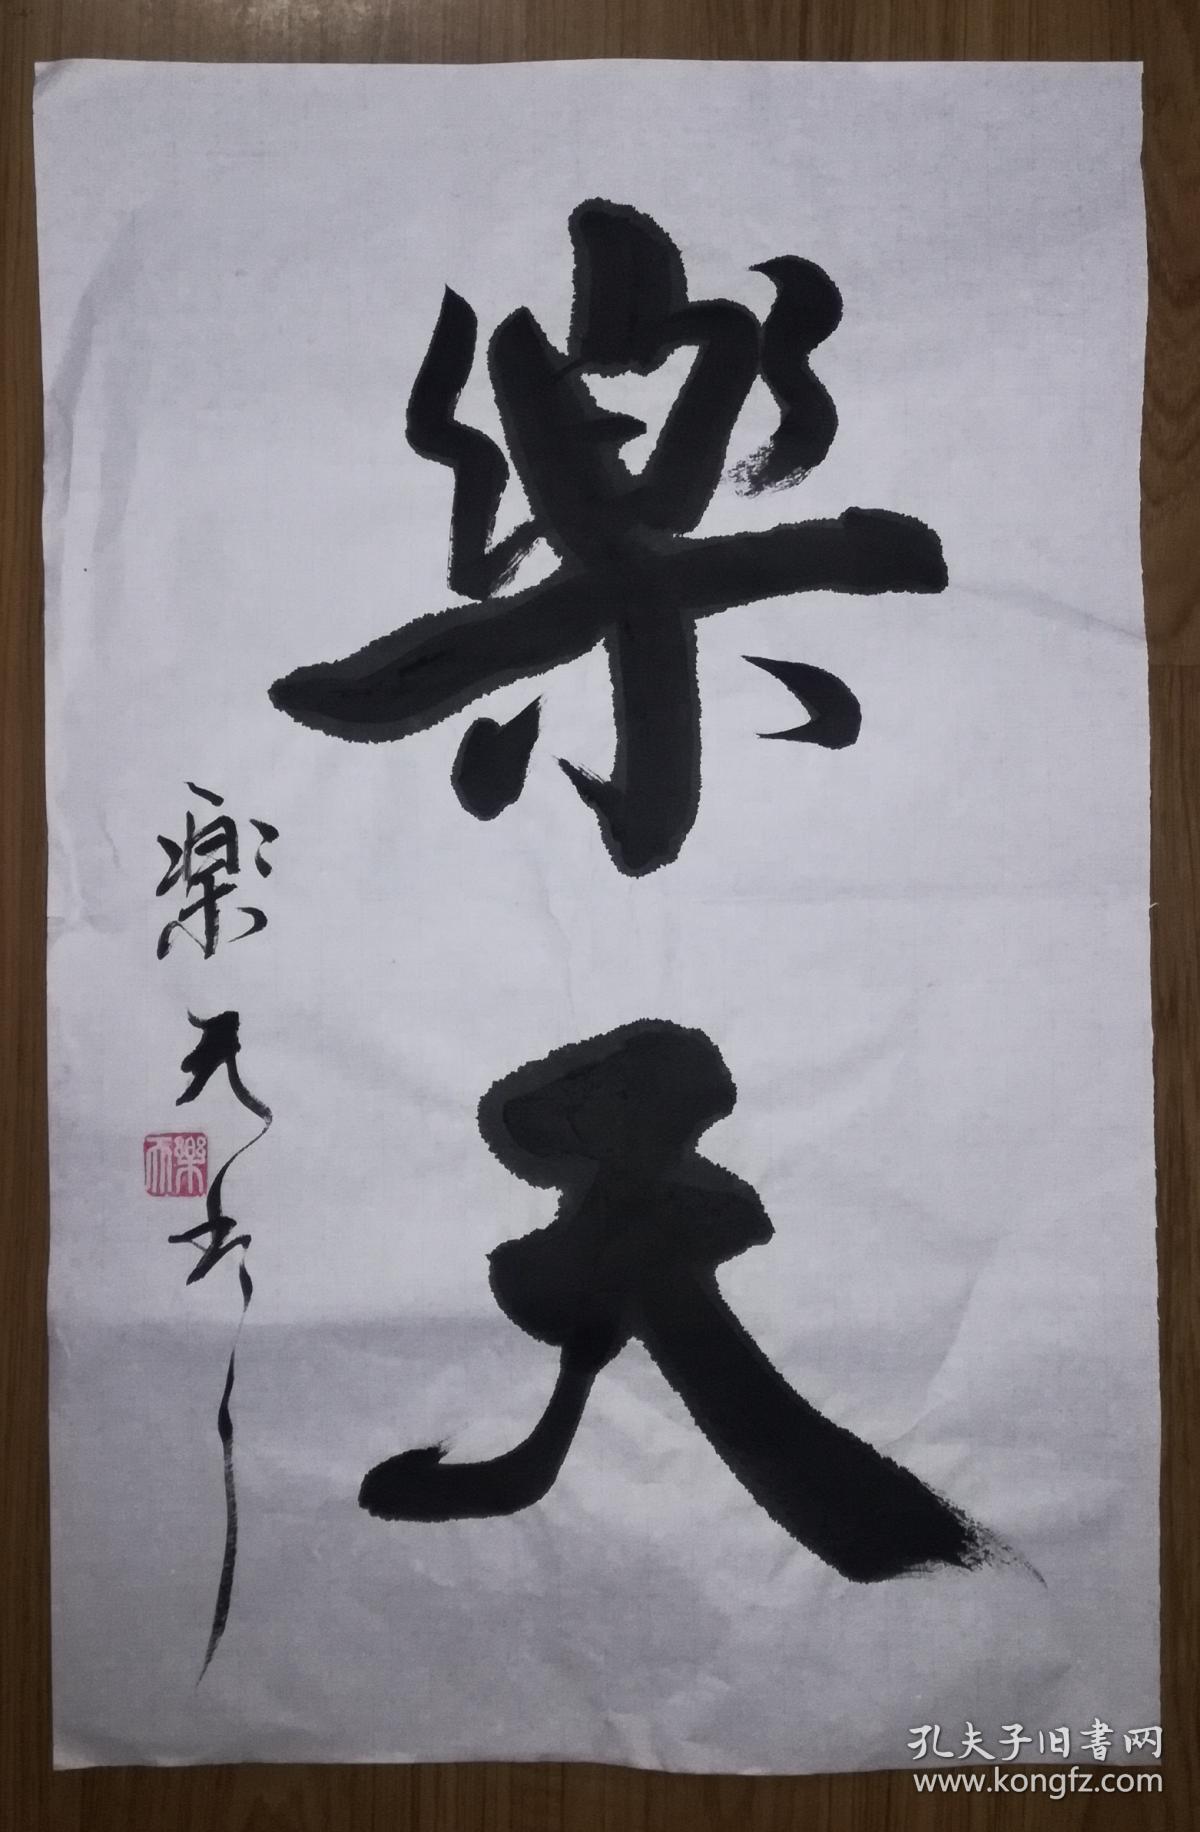 樂天
樂天书
樂天
孔夫子旧書网
www.kongfz.com